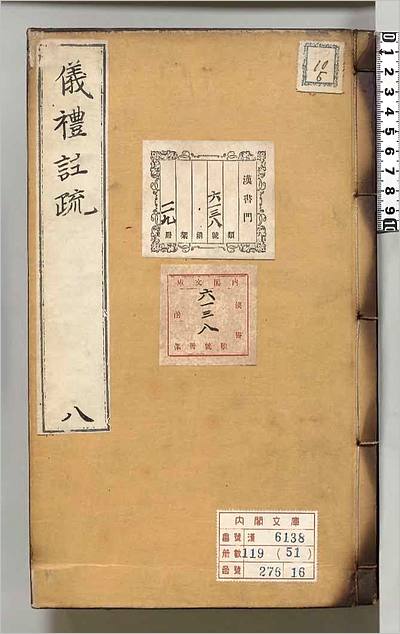 儀禮註疏
八
10/5
漢書門
六一三八
一一九
類 號 凾 架 冊
內閣文庫
漢書
六一三八
函
類號冊架
內閣文庫
番號 漢 6138
冊數 119 (51)
函號 276 16
0 1 2 3 4 5 6 7 8 9 10